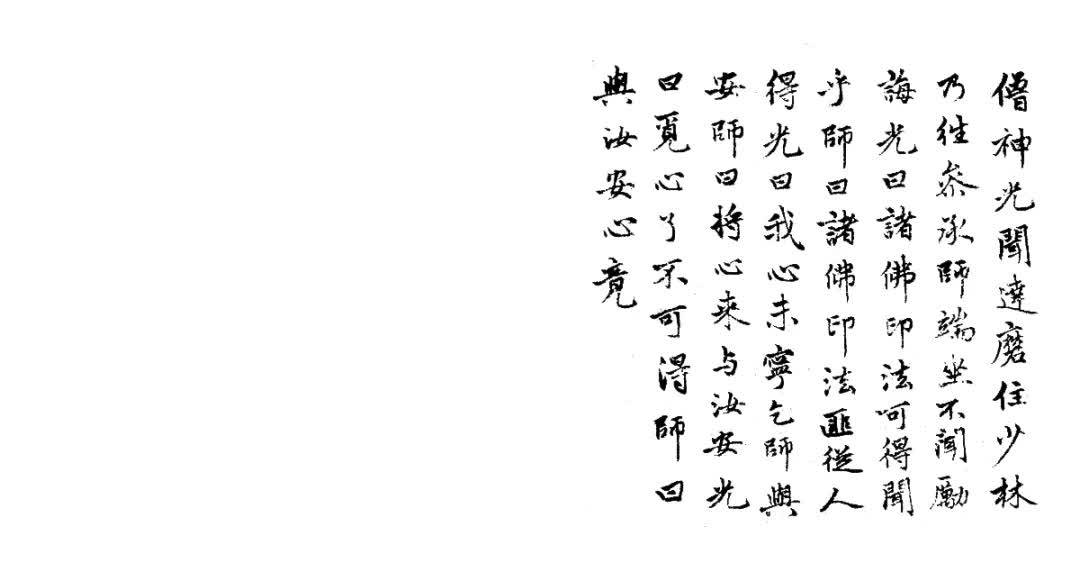 僧神光聞達磨住少林
乃往叅承師端坐不聞勵
誨光曰諸佛印法呵得聞
乎師曰諸佛印法匪從人
得光曰我心未寧乞師與
安師曰将心来与汝安光
曰覓心了不可得師曰
與汝安心竟